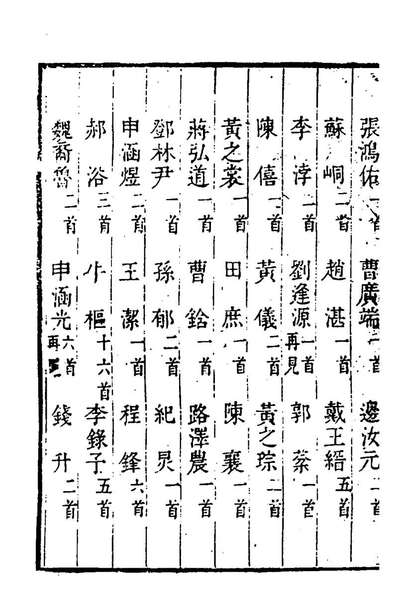 張鴻佑一首 曹廣端一首 邊汝元一首
蘇峒二首 趙湛一首 戴王縉五首
李浡一首 劉逢源一首再見 郭棻一首
陳僖一首 黃儀二首 黃之琮二首
黃之裳一首 田庶一首 陳襄一首
蔣弘道一首 曹鉿一首 路澤農一首
鄧林尹一首 孫郁二首 紀炅一首
申涵煜二首 王潔一首 程鋒六首
郝浴三首 卞樞十六首 李錄予五首
魏裔魯二首 申涵光六首再見 錢升二首